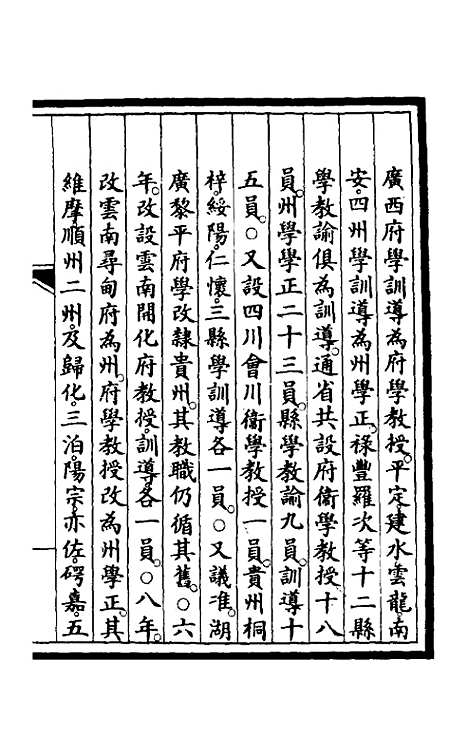 廣西府學訓導為府學教授。平定。建水雲龍南
安。四州學訓導為州學正。祿豐羅次等十二縣
學教諭俱為訓導。通省共設府衞學教授十八
員。州學學正二十三員。縣學教諭九員。訓導十
五員。○又設四川會川衞學教授一員。貴州桐
梓。綏陽。仁懷。三縣學訓導各一員。○又議准。湖
廣黎平府學改隸貴州。其教職仍循其舊。○六
年。改設雲南開化府教授。訓導。各一員。○八年。
改雲南尋甸府為州。府學教授改為州學正。其
維摩順州二州。及歸化。三泊。陽宗。亦佐。碍嘉。五